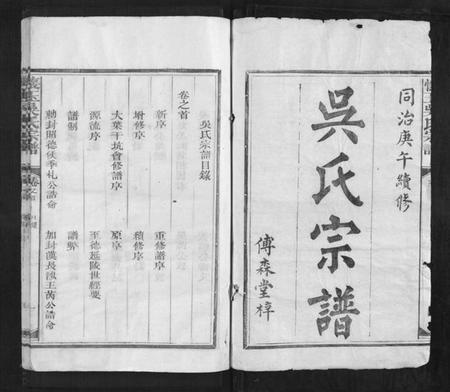 同治庚午續修
吳氏宗譜
傅森堂梓
吳氏宗譜目錄
卷之首
新序
重修譜序
增修序
續修序
大葉干坑會修譜序
原序
源流序
至德延陵世經要
譜制
譜弊
勅封照德侯季札公誥命
加封漢長沙王芮公誥命